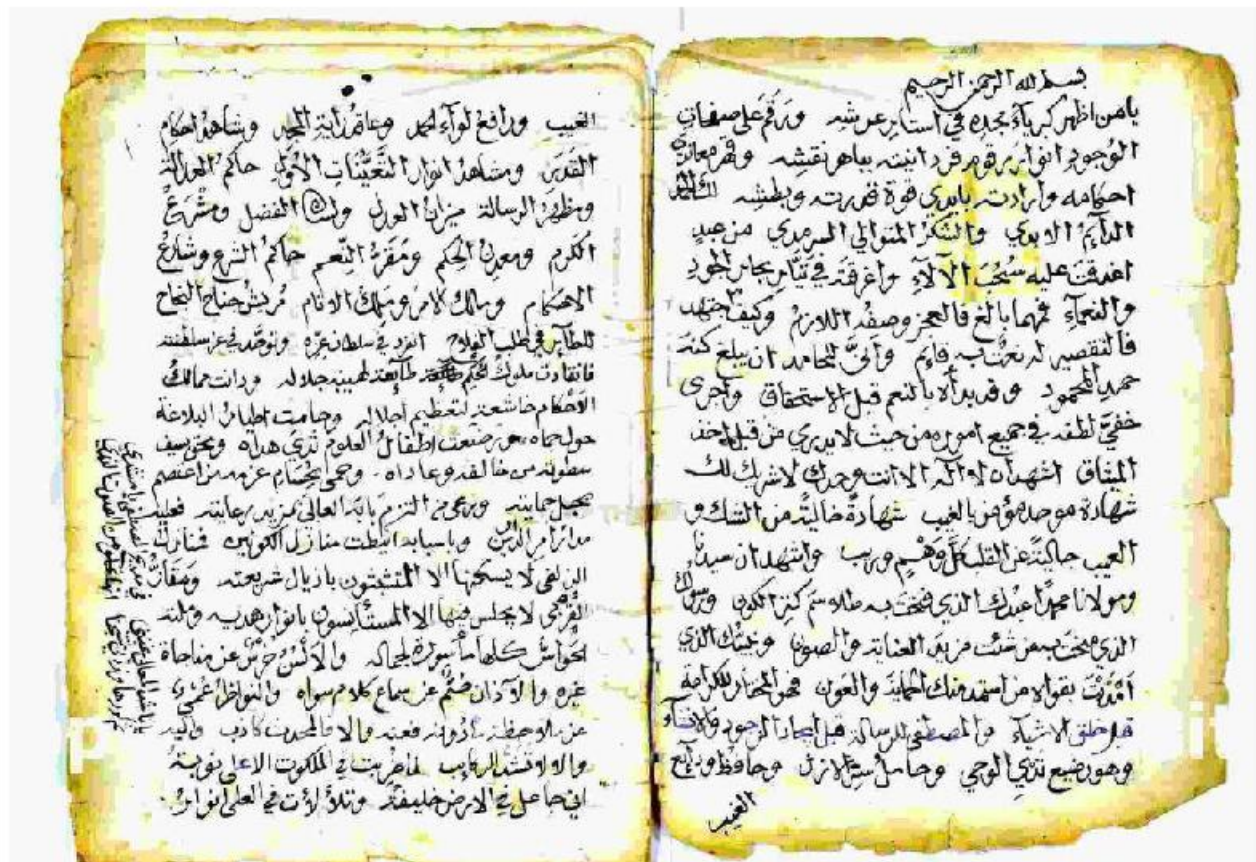 بسم الله الرحمن الرحيم
يا من اظهر كبرياء مجده في استاير عرشه ورقم على صفحات
الوجود انوار رقوم فردانيته بباهر نقشه وقهر معاندي
احكامه وارادته بايدي قوة قدرته وبطشه لك الحمد
الدآيم الابدي والشكر المتوالي السرمدي من عبدٍ
اغدقت عليه سُحُبَ الآلآءِ واغرقته في تيّار بحار الجود
والنعمآء فمهما بالغ فالعجز وصفه اللازم وكيف جتهد
فالتقصير له نعت به قايم وأنّى للحامد ان يبلغ كنه
حمد المحمود وقد بدأه بالنعم قبل الاستحقاق وأجرى
خفيّ لطفه في جميع اموره من حيث لا يدري من قبل اخذ
الميثاق اشهد ان لا اله الا انت وحدك لا شريك لك
شهادة موحد مؤمن بالغيب شهادةً خاليةً من الشك و
العيب جاليةً عن القلب كلّ وَهْمٍ وريب واشهد ان سيدنا
ومولانا محمدًا عبدك الذي فتحت به طلاسم كنز الكون ورسولك
الذي منحت به من شئت مزيد العناية والصون ونبيّك الذي
امددت بقواه من استمد منك الحماية والعون فهو المختار للكرامة
قبل خلق الاشياء والمصطفى للرسالة قبل ايجاد الوجود والانشآء
وهو رضيع ثدي الوحي وحامل سر الازل وحافظ ودآيع
الغيب
الغيب ورافع لوآء الحمد وعاقد راية المجد وشاهد احكام
القدس ومشاهد انوار التعيّنات الأوَل حاكم العدالة
ومظهر الرسالة ميزان العدل ولسان الفضل ومشرع
الكرم ومعدن الحِكم ومقرّ النِّعم حاكم الشرع وشارع
الاحكام ومالك الامر وملك الانام مُريّش جناح النجاح
للطآير في طلب الفلاح انفرد في سلطان عزه وتوحّد في عز سلطنته
فانقادت ملوك الحكم طآيعة لهيبة جلاله ودانت ممالك
الاحكام خاشعة لتعظيم اجلاله وحامت اطيار البلاغة
حول حماه حين رضعت اطفال العلوم ثدي هداه ومحق بسيف
سطوته من خالفه وعاداه وحمى بحسام عزمه من اعتصم
بحبل حمايته ورعى من التزم بابه العالي بمزيد رعايته فعليه
مدار امر الدارين وباسبابه انيطت منازل الكونين فمنازل
الزلفى لا يسكنها الا المتشبثون باذيال شريعته ومقام
القُربى لا يجلس فيها الا المستأنسون بانوار هديه وملته
الحواسّ كلها مأسورة لجماله والالسن خرسٌ عن مناجاة
غيره والآذان صُمٌّ عن سماع كلام سواه والنواظر عُمْيٌ
عن ملاحظة ما دونه والا فالمحب كاذب واليه
والا لا تُشدّ الركايب لما ضربت في الملكوت الاعلى نوبة
اني جاعل في الارض خليفة وتلألأت في العلى انواره